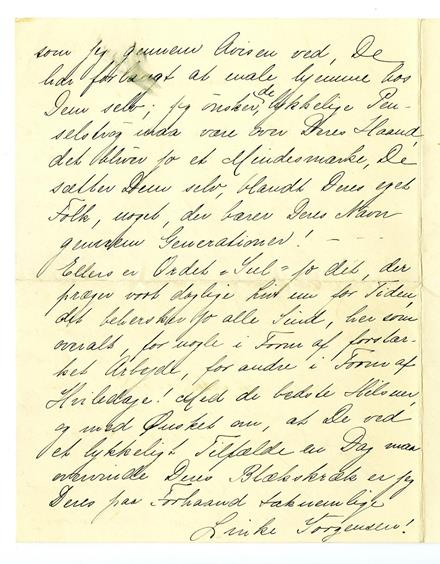 som jeg gennem Avisen ved, De
har forlangt at male hjemme hos
Dem selv; jeg ønsker, de lykkelige Pen-
selstrøg maa være over Deres Haand,
det bliver jo et Mindesmærke, De
sætter Dem selv, blandt Deres eget
Folk, noget, der bærer Deres Navn
gennem Generationer! — —
Ellers er Ordet "Jul" jo det, der
præger vort daglige Liv nu for Tiden,
det behersker jo alle Sind, her som
overalt, for nogle i Form af forstær-
ket Arbejde, for andre i Form af
Hviledage! Med de bedste Hilsner,
og med Ønsket om, at De ved
et lykkeligt Tilfælde en Dag maa
overvinde Deres Blækskræk er jeg
Deres paa Forhaand taknemlige
Linke Jørgensen!